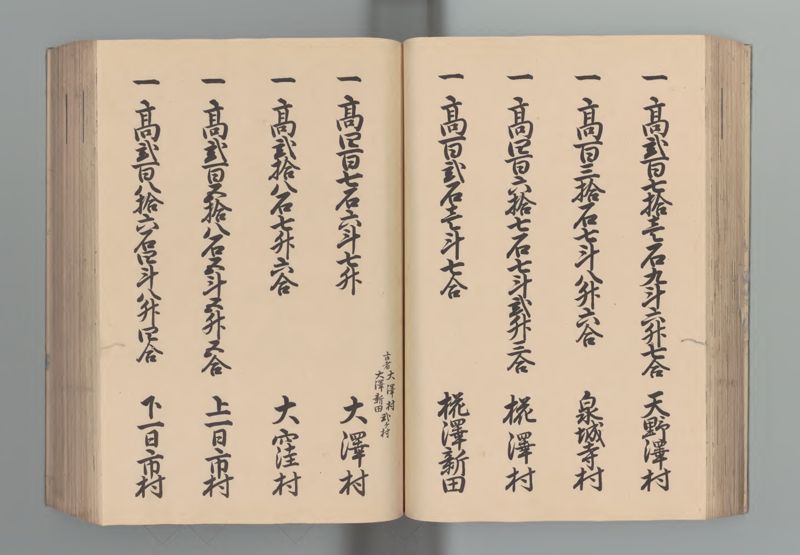 一 高弐百七拾壱石九斗六升七合 天野澤村
一 高百三拾石七斗八升六合 泉城寺村
一 高四百六拾七石七斗弐升三合 椛澤村
一 高百弐石壱斗七合 椛澤新田
古者大澤村弐ヶ村
大澤新田
一 高四百七石六斗七升 大澤村
一 高弐拾八石七升六合 大窪村
一 高弐百五拾八石五斗五升五合 上一日市村
一 高弐百八拾六石四斗八升四合 下一日市村